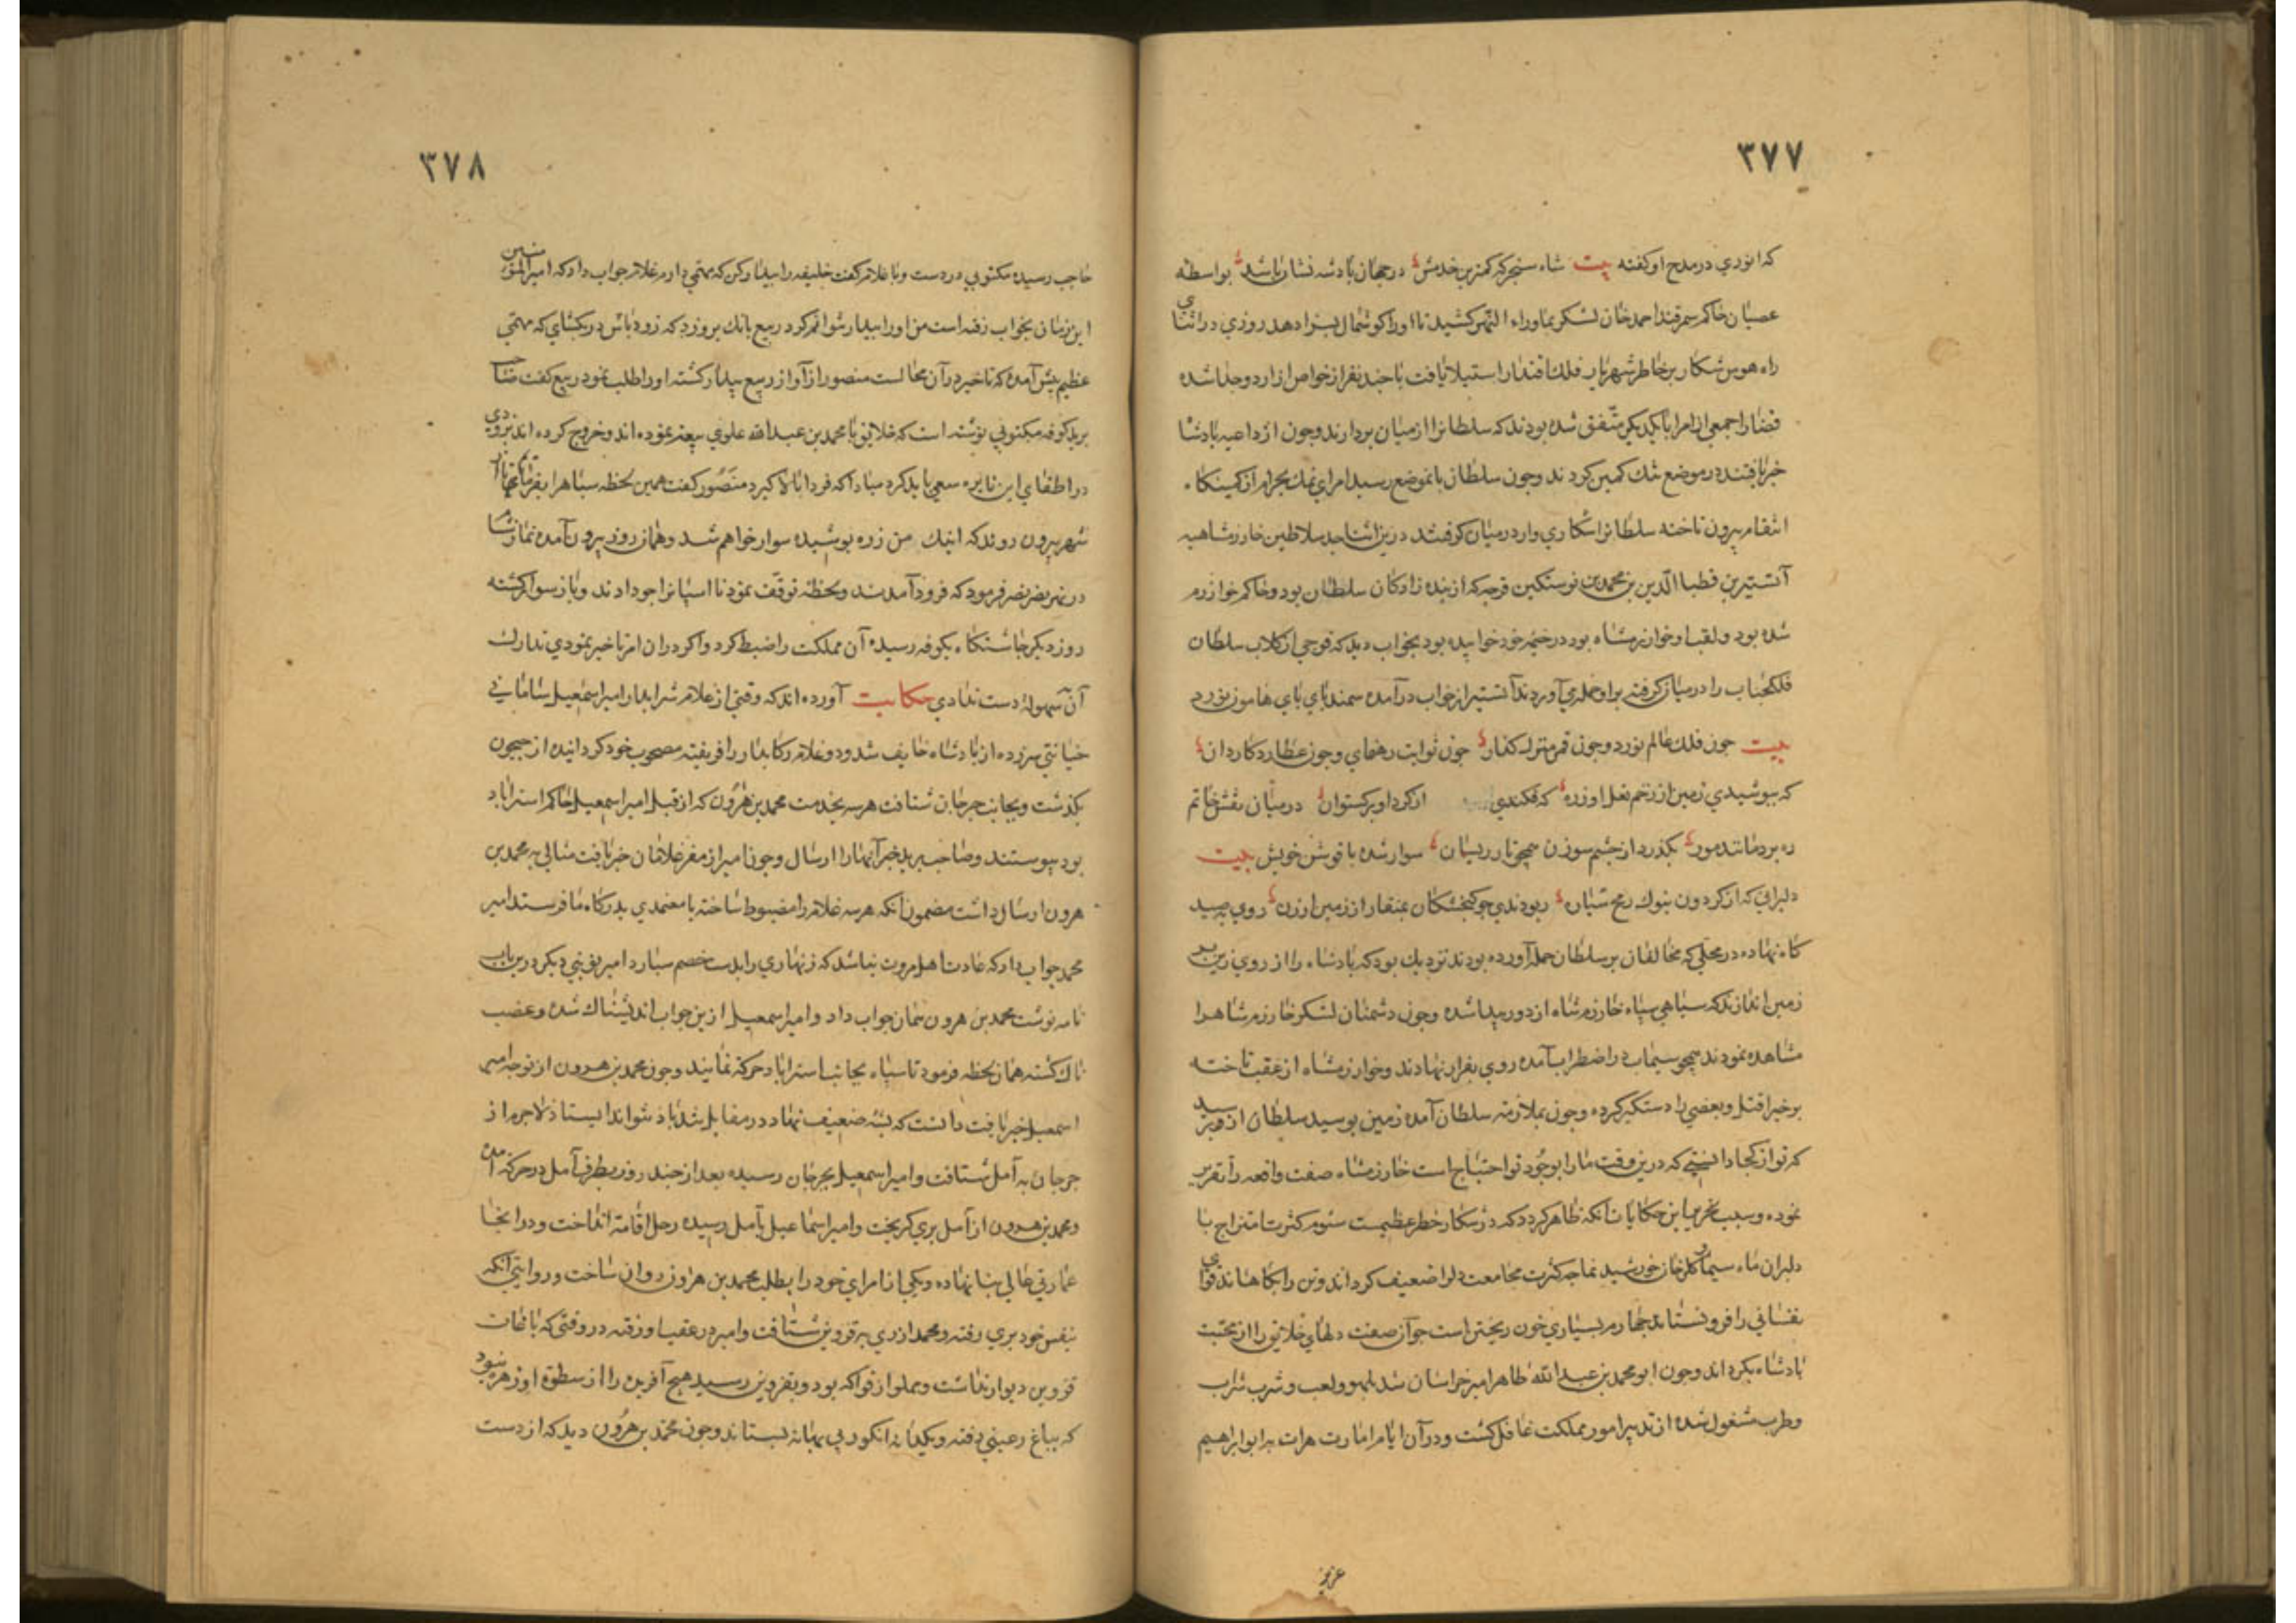 ٣٧٧
که انوري در مدح او کفته بیت شاه سنجر که کمترین خدمش در جهان پادشه نشان باشد بواسطه
عصیان حاکم سمرقند احمد خان لشکر بماوراء النهر کشید تا اورا کوشمال بسزا دهد روزي در اثنای
راه هوس شکار بر خاطر شهریار فلك اقتدار استیلا یافت با چند نفر از خواص از اردو جدا شده
قضارا جمعي از امرا با یکدیکر متّفق شده بودند که سلطانرا از میان بردارند وچون از داعیه پادشا
خبر یافتند در موضع تنك کمین کردند وچون سلطان بانموضع رسید امراي نمك بحرام از کمینکاه
انتقام بیرون تاخته سلطانرا شکاري وار در میان کرفتند درین اثنا جد سلاطین خوارزمشاهیه
آتسز بن قطب الدین بن محمد بن نوستکین غرجه که از بنده زادکان سلطان بود وحاکم خوارزم
شده بود ولقب او خوارزمشاه بود در خیمه خود خوابیده بود بخواب دید که فوجي از کلاب سلطان
فلك جناب را در میان کرفته براو حمله مي آوردند آتسز از خواب در آمده سمند باي پاي هامون نورد
بیت چون فلك عالم نورد وچون قمر منزل کذار چون ثوابت رهنماي وچون عطارد کاردان
که بپوشیدي زمین از زخم نعل او زره که فکندي از کرد او برکستوان در میان نقش خاتم
ره برد مانند مور بکذرد از چشم سوزن همچو تار ریسمان سوار شده با قوشن خویش بیت
دلیراني که از کردون بنوك رمح شبان ربودندي چو کنجشکان بمنقار از زمین ارزن روي بصید
کاه نهاده در محلي که مخالفان بر سلطان حمله آورده بودند نزدیك بود که پادشاه را از روي زین بر
زمین اندازند که سیاهي سپاه خوارزمشاه از دور پیدا شده وچون دشمنان لشکر خوارزمشاهرا
مشاهده نمودند همچو سیماب در اضطراب آمده روي بفرار نهادند وخوارزمشاه از عقب تاخته
برخيرا قتل وبعضي را دستکیر کرده وچون بملازمة سلطان آمده زمین بوسید سلطان از وي پرسید
که تو از کجا دانستي که درین وقت مارا بوجود تو احتیاج است خوارزمشاه صفت واقعه را تقریر
نموده وسبب تحریر این حکایات آنکه ظاهر کردد که در شکار خطر عظیمست سئوم کثرت امتزاج با
دلبران ماه سیما وکلرخان خورشید نما چه کثرت مجامعت دلرا ضعیف کرداند وتن را بکاهاند قواي
نفساني را فرو نشاند چهارم بسیاري خون ریختن است چو آن صفت دلهاي خلایق را از محبت
پادشاه بکرداند وچون ابو محمد بن عبد الله طاهر امیر خراسان شد بلهو ولعب وشرب شراب
وطرب مشغول شده از تدبیر امور مملکت غافل کشت ودر آن ایام امارت هرات بر ابو ابراهیم
عزیز
٣٧٨
حاجب رسیده مکتوبي در دست وبا غلام کفت خلیفه را بیدار کن که مهمي دارم غلام جواب داد که امیر المؤمنین
این زمان بخواب رفته است من اورا بیدار نتوانم کرد ربیع بانك بروزد که زود باش در بکشاي که مهمي
عظیم پیش آمده که تاخیر در آن محالست منصور از آواز ربیع بیدار کشته اورا طلب نمود ربیع کفت صاحب
برید کوفه مکتوبي نوشته است که خلایق با محمد بن عبد الله علوي بیعة نموده اند وخروج کرده اند بزودي
در اطفاي این نایره سعي باید کرد مبادا که فردا بالا کیرد منصور کفت همین لحظه سپاهرا بفرماي تا از
شهر بیرون روند که اینك من زره پوشیده سوار خواهم شد وهمان روز بیرون آمده نماز شام
در نهر بضر فرمود که فرود آمدند ولحظه توقّف نمود تا اسپانرا جو دادند وباز سوار کشته
روز دیکر چاشتکاه بکوفه رسیده آن مملکت را ضبط کرد واکر دران امر تاخیر نمودي تدارك
آن بسهولة دست ندادي حکایت آورده اند که وقتي از غلام شرابدار امیر اسمعیل ساماني
خیانتي سر زده از پادشاه خایف شد ودو غلام رکابدار را فریفته مصحوب خود کردانیده از جیحون
بکذشت وبجانب جرجان شتافت هرسه بخدمت محمد بن هرون که از قبل امیر اسمعیل حاکم استراباد
بود پیوستند وصاحب برید خبر آنهارا ارسال وچون امیر از مفر غلامان خبر یافت مثالي به محمد بن
هرون ارسال داشت مضمون آنکه هرسه غلام را مضبوط ساخته با معتمدي بدرکاه ما فرستد امیر
محمد جواب داد که عادت اهل مروت نباشد که زنهاري را بدست خصم سپارد امیر نوبتي دیکر درین باب
نامه نوشت محمد بن هرون همان جواب داد وامیر اسمعیل ازین جواب اندیشناك شده وغضب
ناك کشته همان لحظه فرمود تا سپاه بجانب استراباد حرکة نمایند وچون محمد بن هرون از توجه امیر
اسمعیل خبر یافت دانست که پشه ضعیف نهاد در مقابل تند باد نتواند ایستاد لاجرم از
جرجان به آمل شتافت وامیر اسمعیل بجرجان رسیده بعد از چند روز بطرف آمل در حرکة آمده
ومحمد بن هرون از آمل بري کریخت وامیر اسماعیل بآمل رسیده رحل اقامة انداخت ودر انجا
عمارتي عالي بنا نهاده ویکي از امراي خود را بطلب محمد بن هرون روان ساخت وروایتي آنکه
بنفس خود بري رفته ومحمد از ري به قزوین شتافت وامیر در عقب او رفته در وقتي که باغات
قزوین دیوار نداشت ومملو از فواکه بود وبقزوین رسید هیچ آفریده را از سطوة او زهره نبود
که بباغ رعیتي رفته ویکدانه انکور بي بها نه بستاند وچون محمد بن هرون دید که از دست